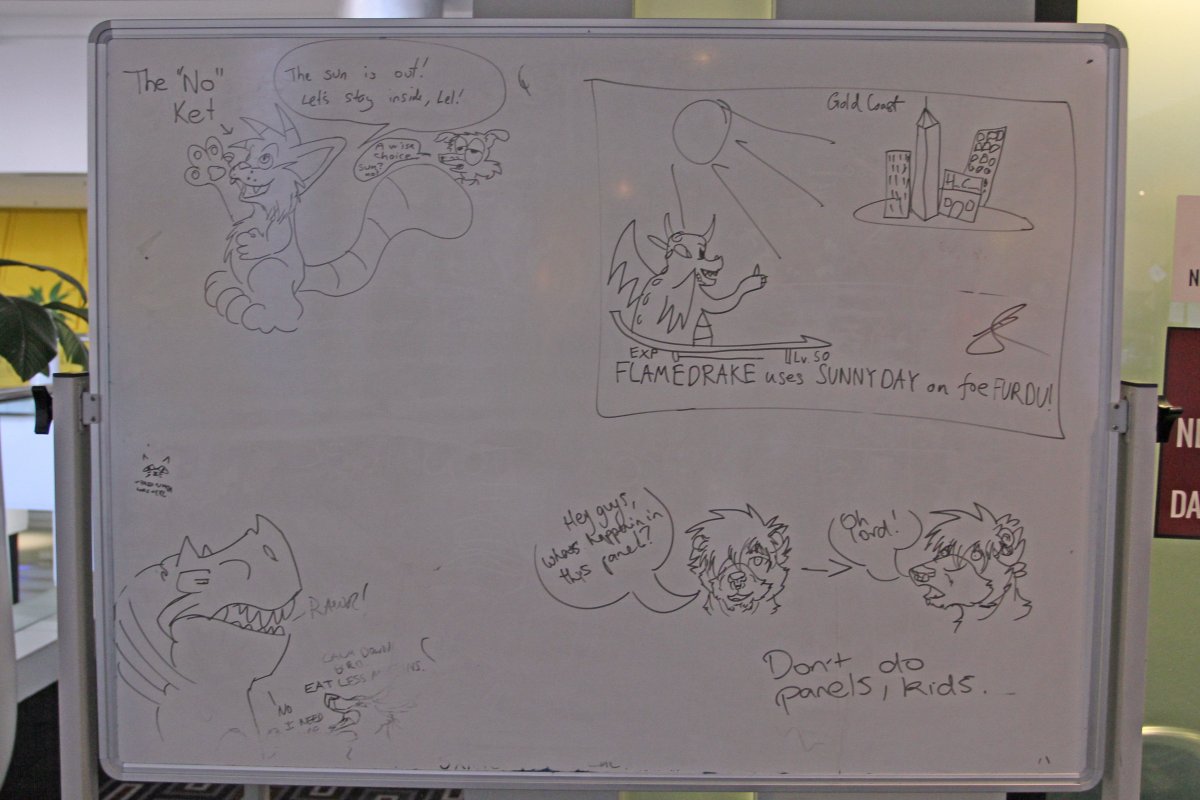 The "No"
Ket
The sun is out!
Let's stay inside, Lel!
A wise
choice
Sun?
no!
Gold Coast
H C
EXP
Lv. 50
FLAMEDRAKE uses SUNNYDAY on foe FURDU!
Hey guys,
whats happenin in
this panel?
Oh
lord!
Don't do
panels, kids.
RAWR!
CALM DOWN
BRO
EAT LESS
NO
I NEED
N
NE
DA